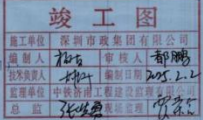 竣工图
施工单位 深圳市政集团有限公司
编制人 审核人 郝鹏
技术负责人 编制日期 2025.2.2
监理单位 中铁济南工程建设监理有限公司
总监 现场监理